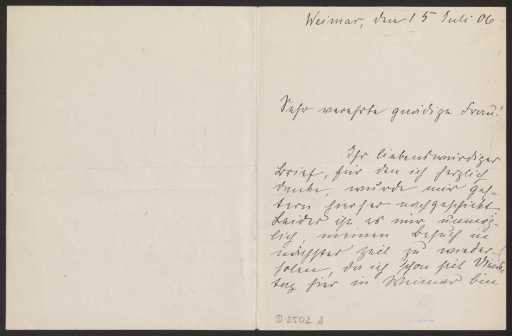 Weimar, den 15 Juli 06.
Sehr verehrte gnädige Frau!
Ihr liebenswürdiger
Brief, für den ich herzlich
danke, wurde mir ges-
tern hierher nachgeschickt.
Leider ist es mir unmög-
lich meinen Besuch in
nächster Zeit zu wieder-
holen, da ich schon seit
tag hier in Weimar bin